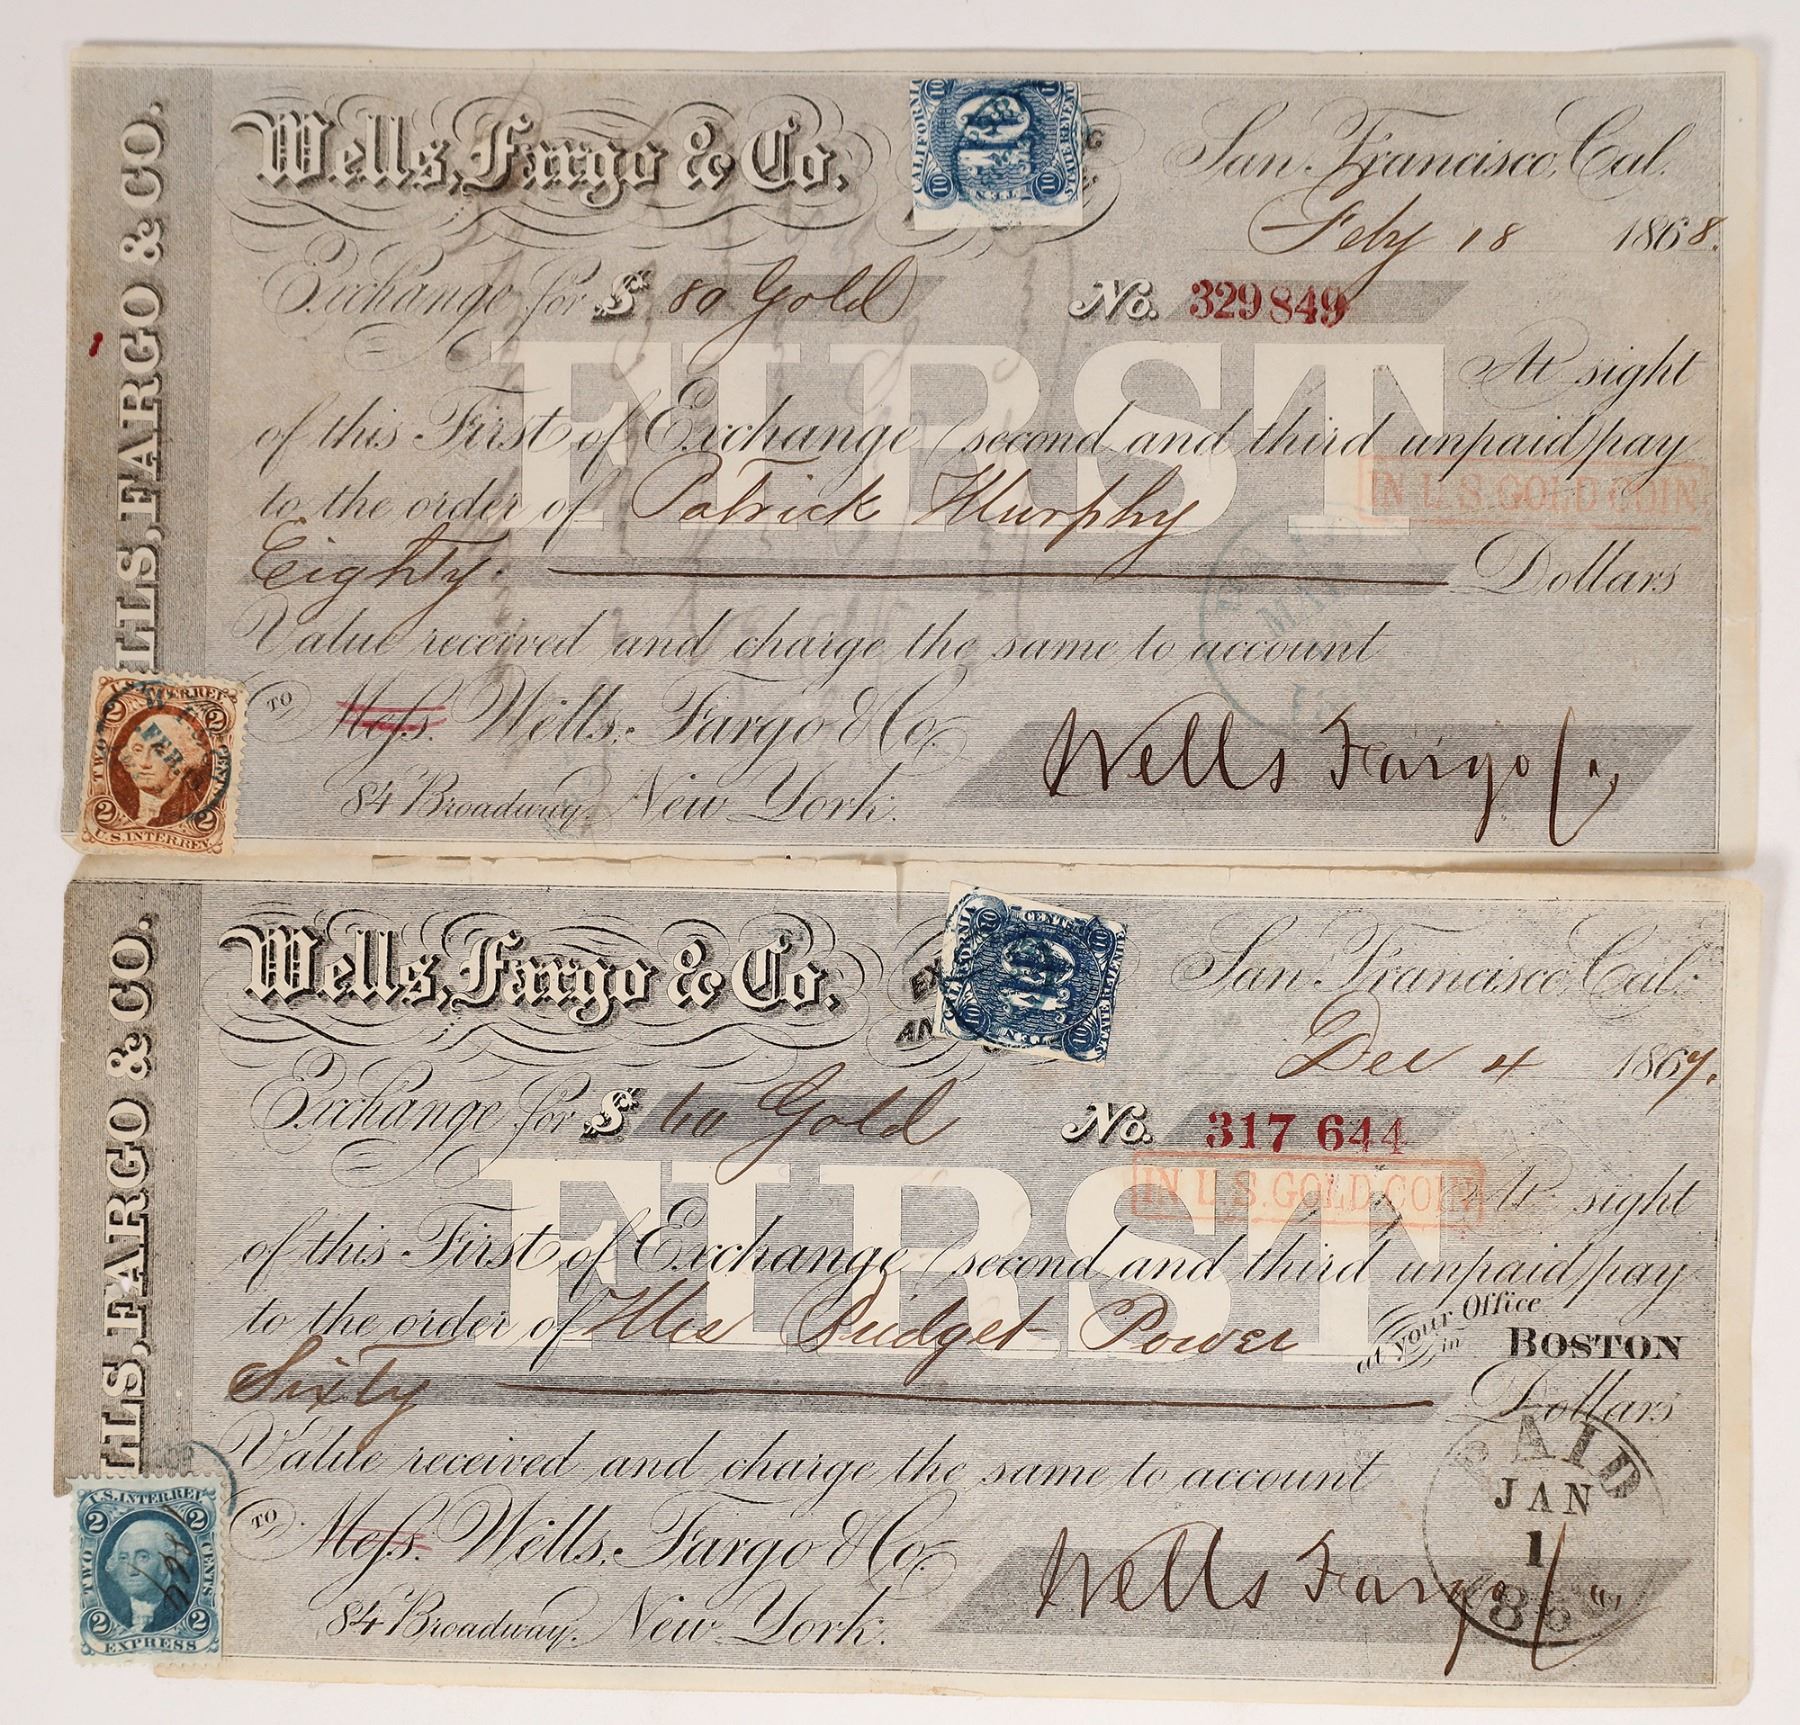 WELLS, FARGO & CO.
Wells, Fargo & Co.
CALIFORNIA
10
TEN
San Francisco, Cal.
Feby 18 1868.
Exchange for $ 80 Gold
No. 329849
FIRST
At sight
of this First of Exchange (second and third unpaid) pay
to the order of Patrick Murphy
IN U.S. GOLD COIN
Eighty Dollars
Value received and charge the same to account
TO Mess. Wells, Fargo & Co.
84 Broadway, New York.
Wells Fargo
U.S. INTER. REV.
2 2
TWO CENTS
FEB. 18
2 2
U.S. INTER. REV.
WELLS, FARGO & CO.
Wells, Fargo & Co.
CALIFORNIA
10
TEN CENTS
San Francisco, Cal.
Dec 4 1867.
Exchange for $ 60 Gold
No. 317 644
IN U.S. GOLD COIN
FIRST
At sight
of this First of Exchange (second and third unpaid) pay
to the order of Mrs Bridget Power
at your Office in BOSTON
Sixty Dollars
Value received and charge the same to account
PAID
JAN
1
TO Mess. Wells, Fargo & Co.
84 Broadway, New York.
Wells Fargo
U.S. INTER. REV.
2 2
TWO CENTS
2 2
EXPRESS